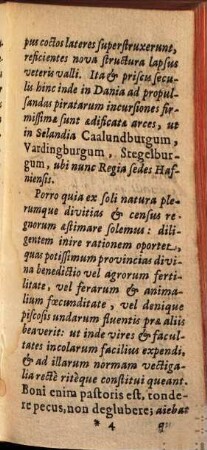 pus coctos lateres superstruxerunt,
reficientes nova structura lapsus
veteris valli. Ita & priscis secu-
lis hinc inde in Dania ad propul-
sandas piratarum incursiones fir-
missimæ sunt ædificata arces, ut
in Selandia Caalundburgum,
Vardingburgum, Stegelbur-
gum, ubi nunc Regia sedes Haf-
niensis.
Porro quia ex soli natura ple-
rumque divitias & census re-
gnorum æstimare solemus: dili-
gentem inire rationem oportet,
quas potissimum provincias divi-
na benedictio vel agrorum ferti-
litate, vel ferarum & anima-
lium fœcunditate, vel denique
piscosis undarum fluentis præ aliis
beaverit: ut inde vires & facul-
tates incolarum facilius expendi,
& ad illarum normam vectiga-
lia rectè ritèque constitui queant.
Boni enim pastoris est, tonde-
re pecus, non deglubere; aiebat
* 4